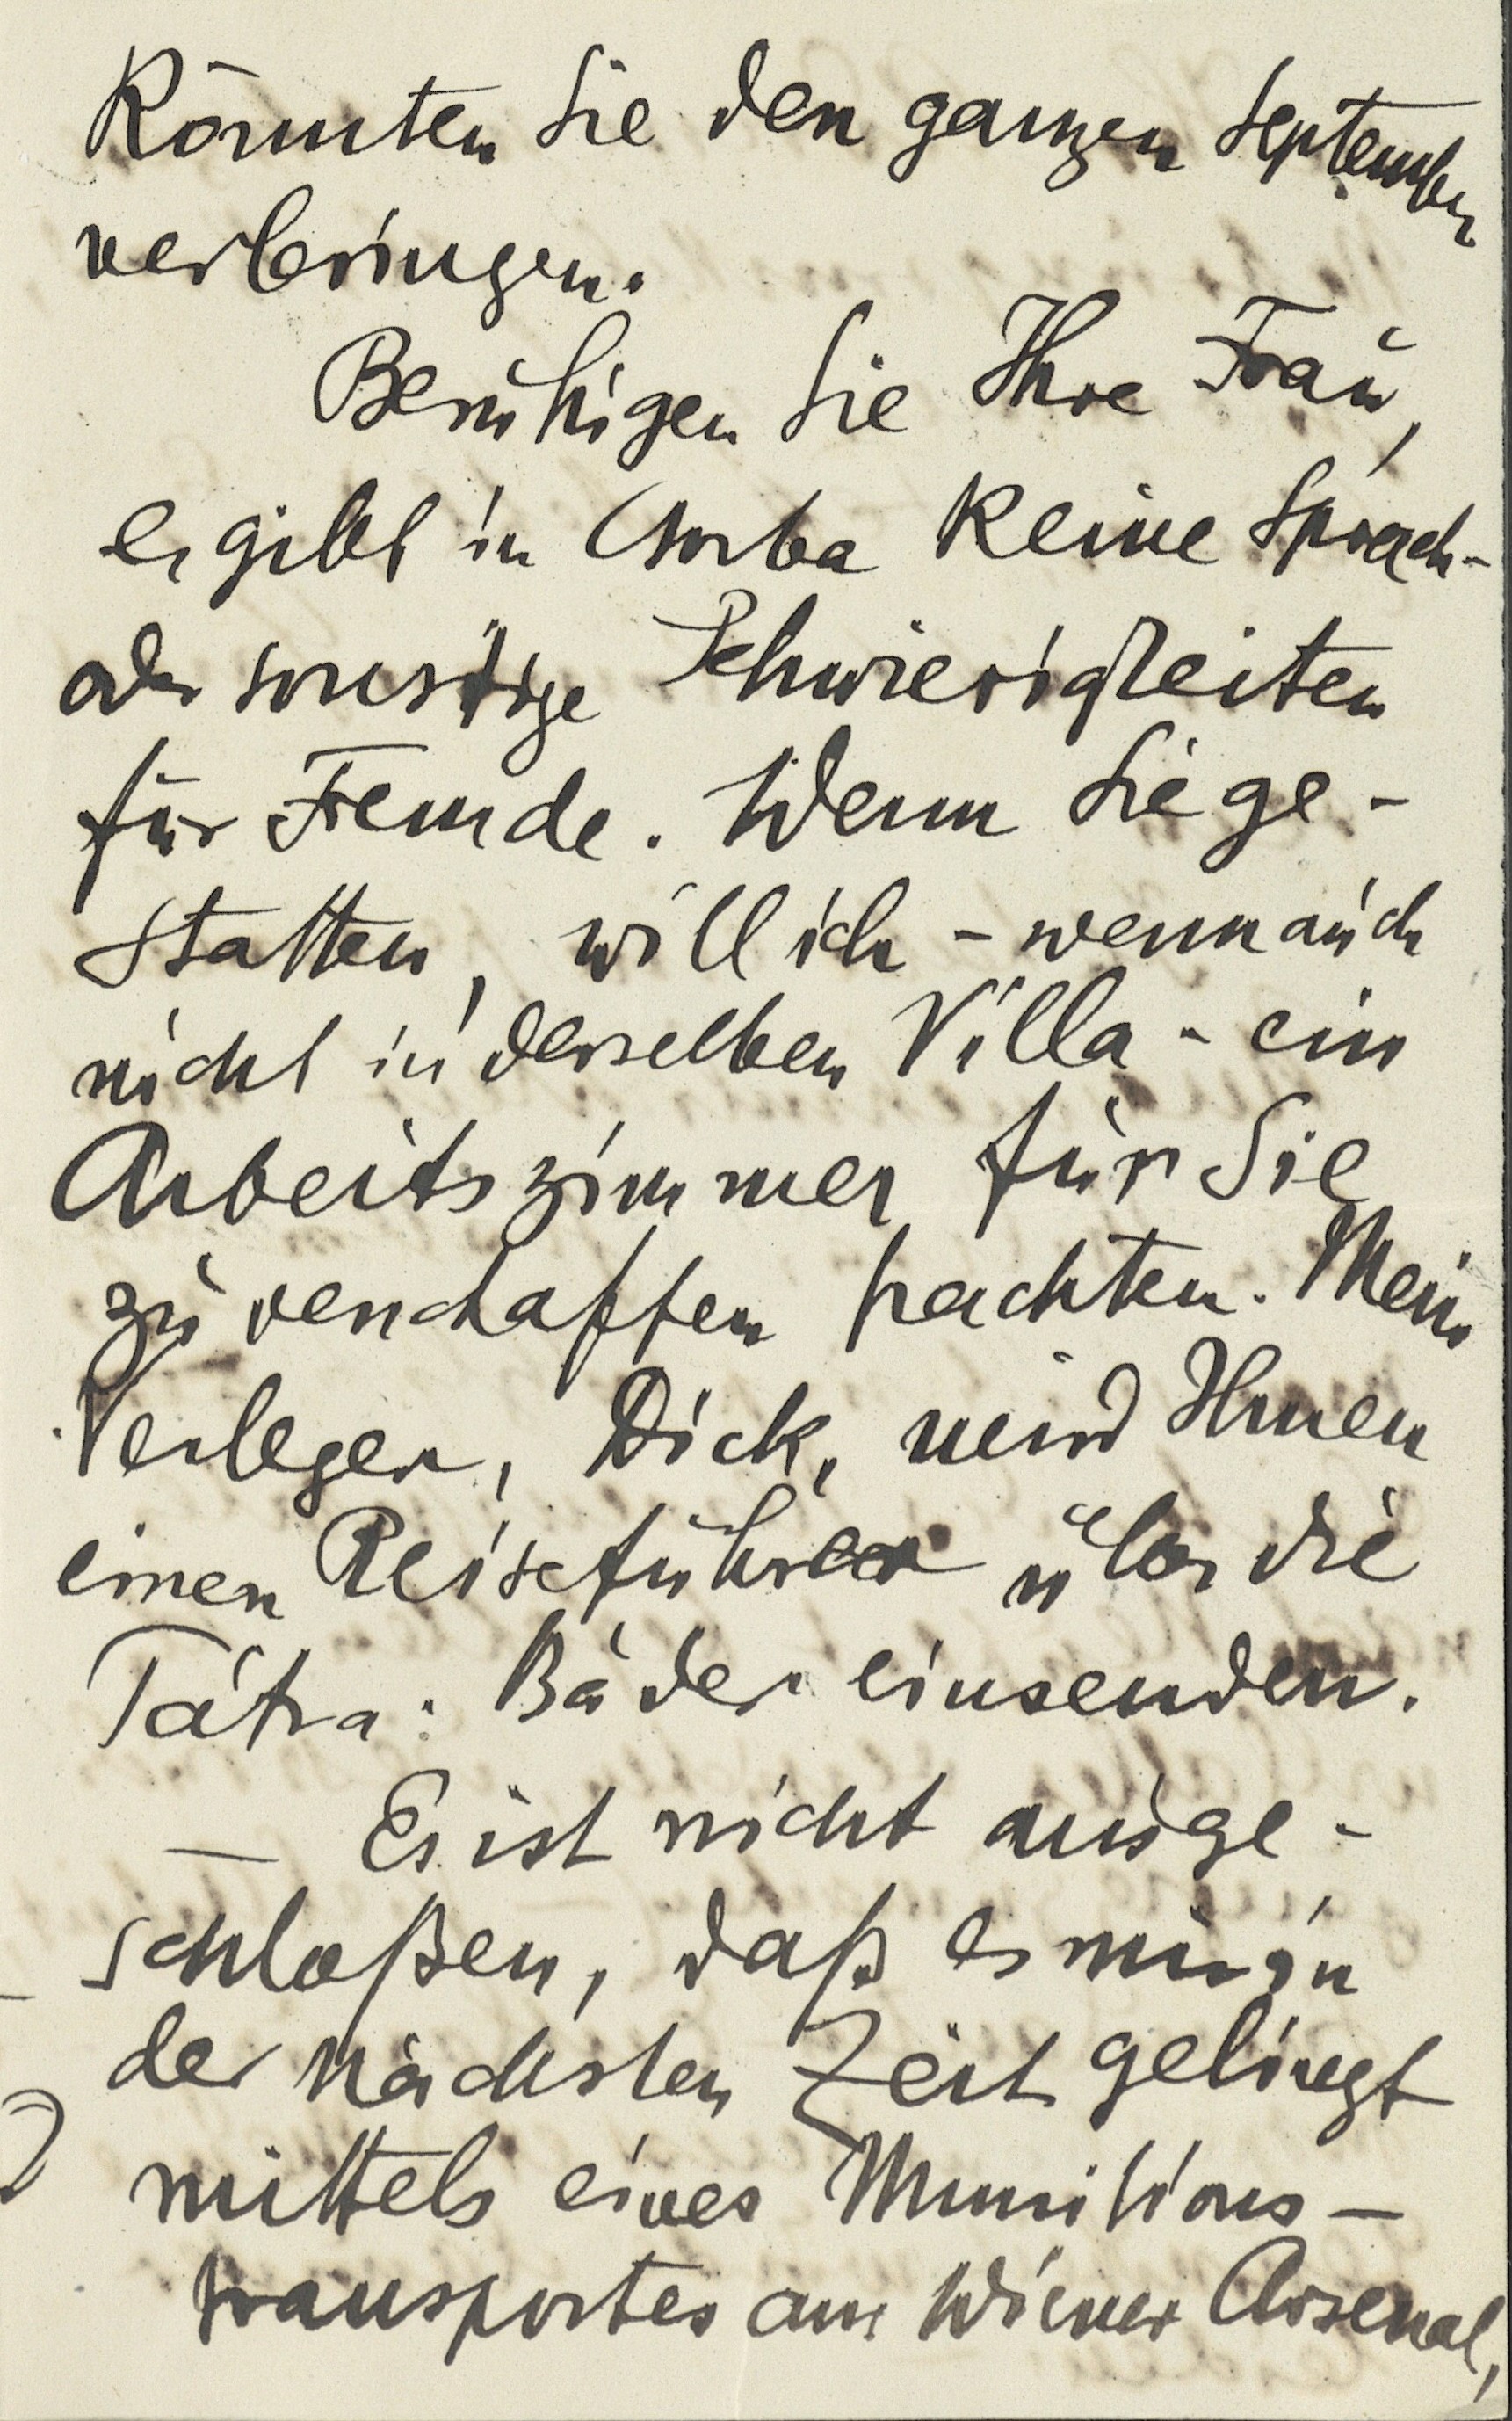 Könnten Sie den ganzen September
verbringen.
Beruhigen Sie Ihre Frau,
es gibt in Csorba keine Sprach-
oder sonstige Schwierigkeiten
für Fremde. Wenn Sie ge-
statten, will ich - wenn auch
nicht in derselben Villa - ein
Arbeitszimmer für Sie
zu verschaffen trachten. Mein
Verleger, Dick, wird Ihnen
einen Reiseführer über die
Tátra-Bäder einsenden.
— Es ist nicht ausge-
schloßen, daß es mir in
der nächsten Zeit gelingt
mittels eines Munitions-
transportes aus Wiener Arsenal,